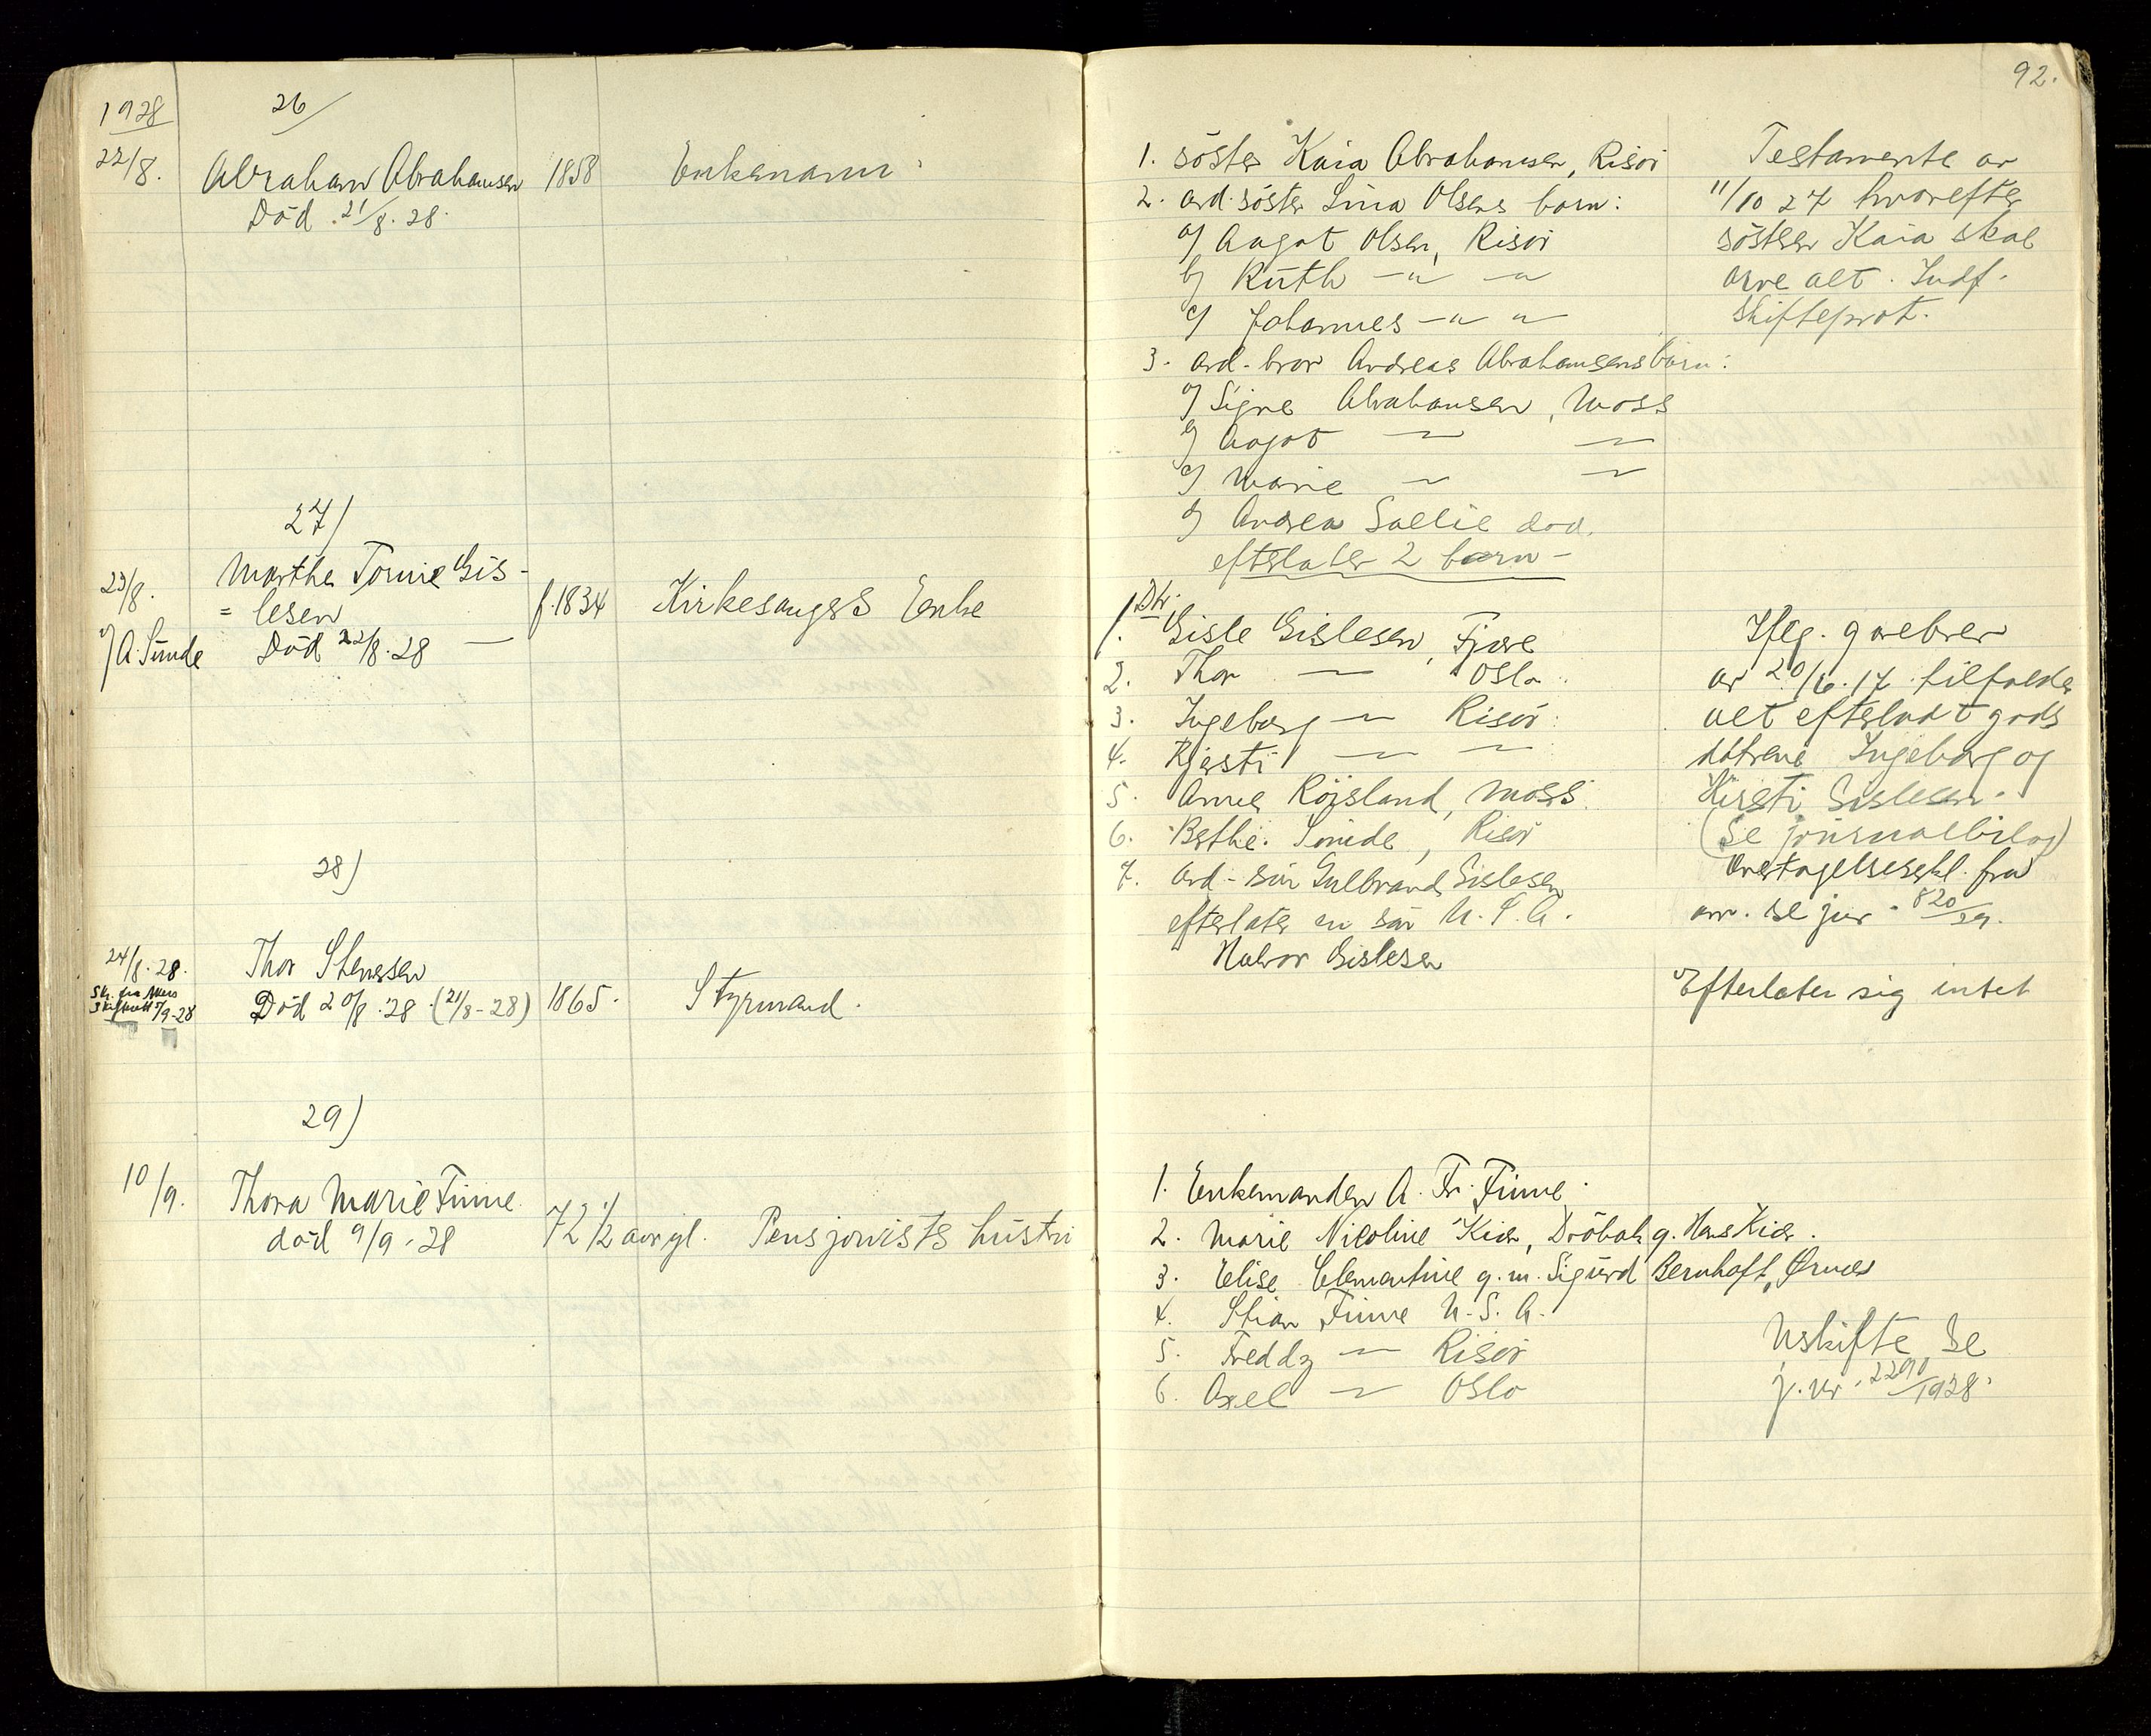 92.
1928
26/
22/8.
Abraham Abrahamsen
Död 21/8. 28.
1858
Enkemann
1. söster Kaia Abrahamsen, Risör
2. avd. söster Lina Olsens barn:
a) Aagot Olsen, Risör
b) Ruth -"- -"-
c) Johannes -"- -"-
3. avd. bror Andreas Abrahamsens barn:
a) Signe Abrahamsen, Moss
b) Aagot — —
c) Marie — —
d) Andrea Sællie död.
efterlater 2 barn -
Testamente av
11/10 27 hvorefter
söster Kaia skal
arve alt. Indf.
skifteprot.
27)
23/8.
v/ A. Sunde
Marthe Tomine Gis-
= lesen
Död 22/8. 28 —
f. 1834
Kirkesangers Enke
1. Gisle Gislesen, Fjære
2. Thor — Oslo.
3. Ingeborg — Risör.
4. Kjersti — —
5. Anne Röisland, Moss.
6. Berthe Sunde, Risör
7. Avd. sön Gulbrand Gislesen
efterlater en sön U.S.A.
Halvor Gislesen
Iflg. gavebrev
av 20/6. 17 tilfalder
alt efterladt gods
døtrene Ingeborg og
Kirsti Gislesen.
(Se journalbilag)
Overtagelseserkl. fra
arv. se jnr. 820/29.
28)
24/8. 28.
Sk. fra Akers
Skifterett 7/9-28
Thor Stensen
Död 20/8. 28 (21/8-28)
1865.
Styrmand.
Efterlater sig intet
29)
10/9.
Thora Marie Finne
död 9/9. 28
72 1/2 aar gl.
Pensjonists hustru
1. Enkemanden A. Fr. Finne.
2. Marie Nicoline Kiær, Dröbak g. Hans Kiær.
3. Elise Clementine g. m. Sigurd Bernhoft, Ørnes
4. Stian Finne U.S.A.
5. Freddy — Risör
6. Axel — Oslo
Uskifte Se
j. nr. 2290/1928.